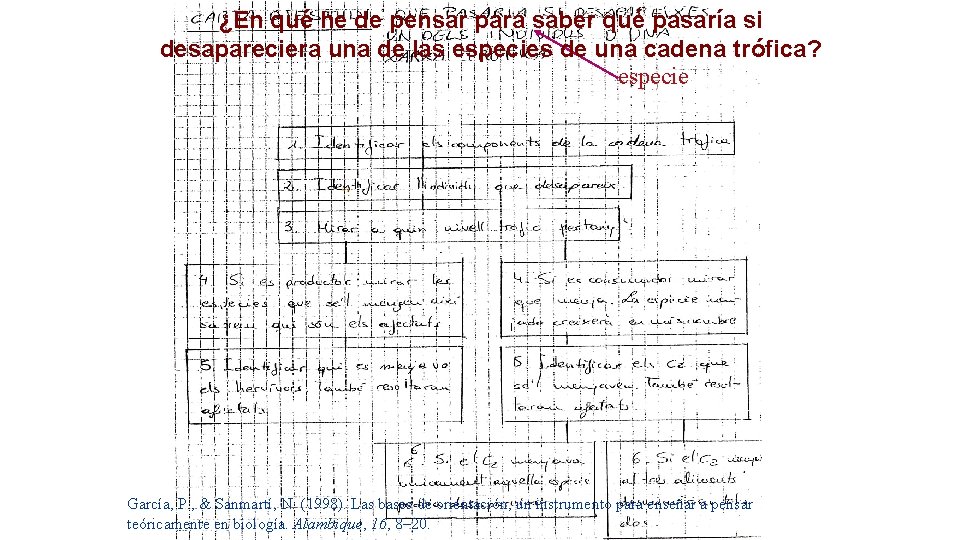 ¿En qué he de pensar para saber qué pasaría si
desapareciera una de las especies de una cadena trófica?
QUE PASARIA SI DESAPAREIXES
UN DELS INDIVIDUS D'UNA
especie
1. Identificar els components de la cadena tròfica
2. Identificar l'individu que desapareix
3. Mirar a quin nivell tròfic pertany
4. Si es productor mirar les
especies que se'l mengen
qui són els afectats
4. Si es consumidor mirar
que menja. La espècie men-
jada creixerà en nombre
5. Identificar qui es menjava
els herbívors també resultaran
afectats.
5 Identificar els C2 que
se'l menjaven. També resul-
taran afectats.
6. Si el C2 menjava
unicament aquella espècie
6. Si el C2
altres aliments
dos.
García, P., & Sanmartí, N. (1998). Las bases de orientación: un instrumento para enseñar a pensar
teóricamente en biología. Alambique, 16, 8–20.